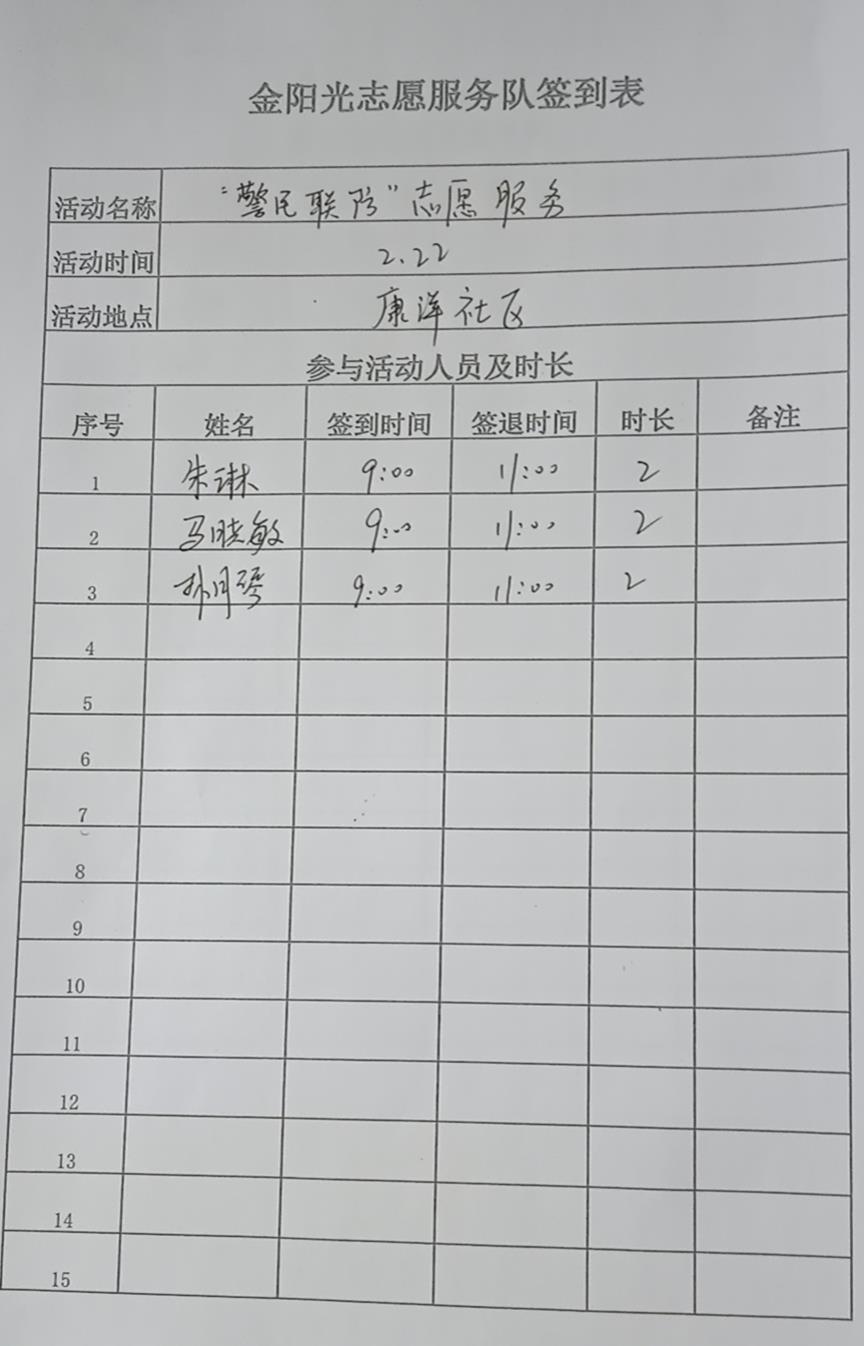 金阳光志愿服务队签到表
活动名称 “警民联防”志愿服务
活动时间 2.22
活动地点 康洋社区
参与活动人员及时长
序号 姓名 签到时间 签退时间 时长 备注
1 朱琳 9:00 11:00 2
2 马晓敏 9:00 11:00 2
3 孙月琴 9:00 11:00 2
4
5
6
7
8
9
10
11
12
13
14
15